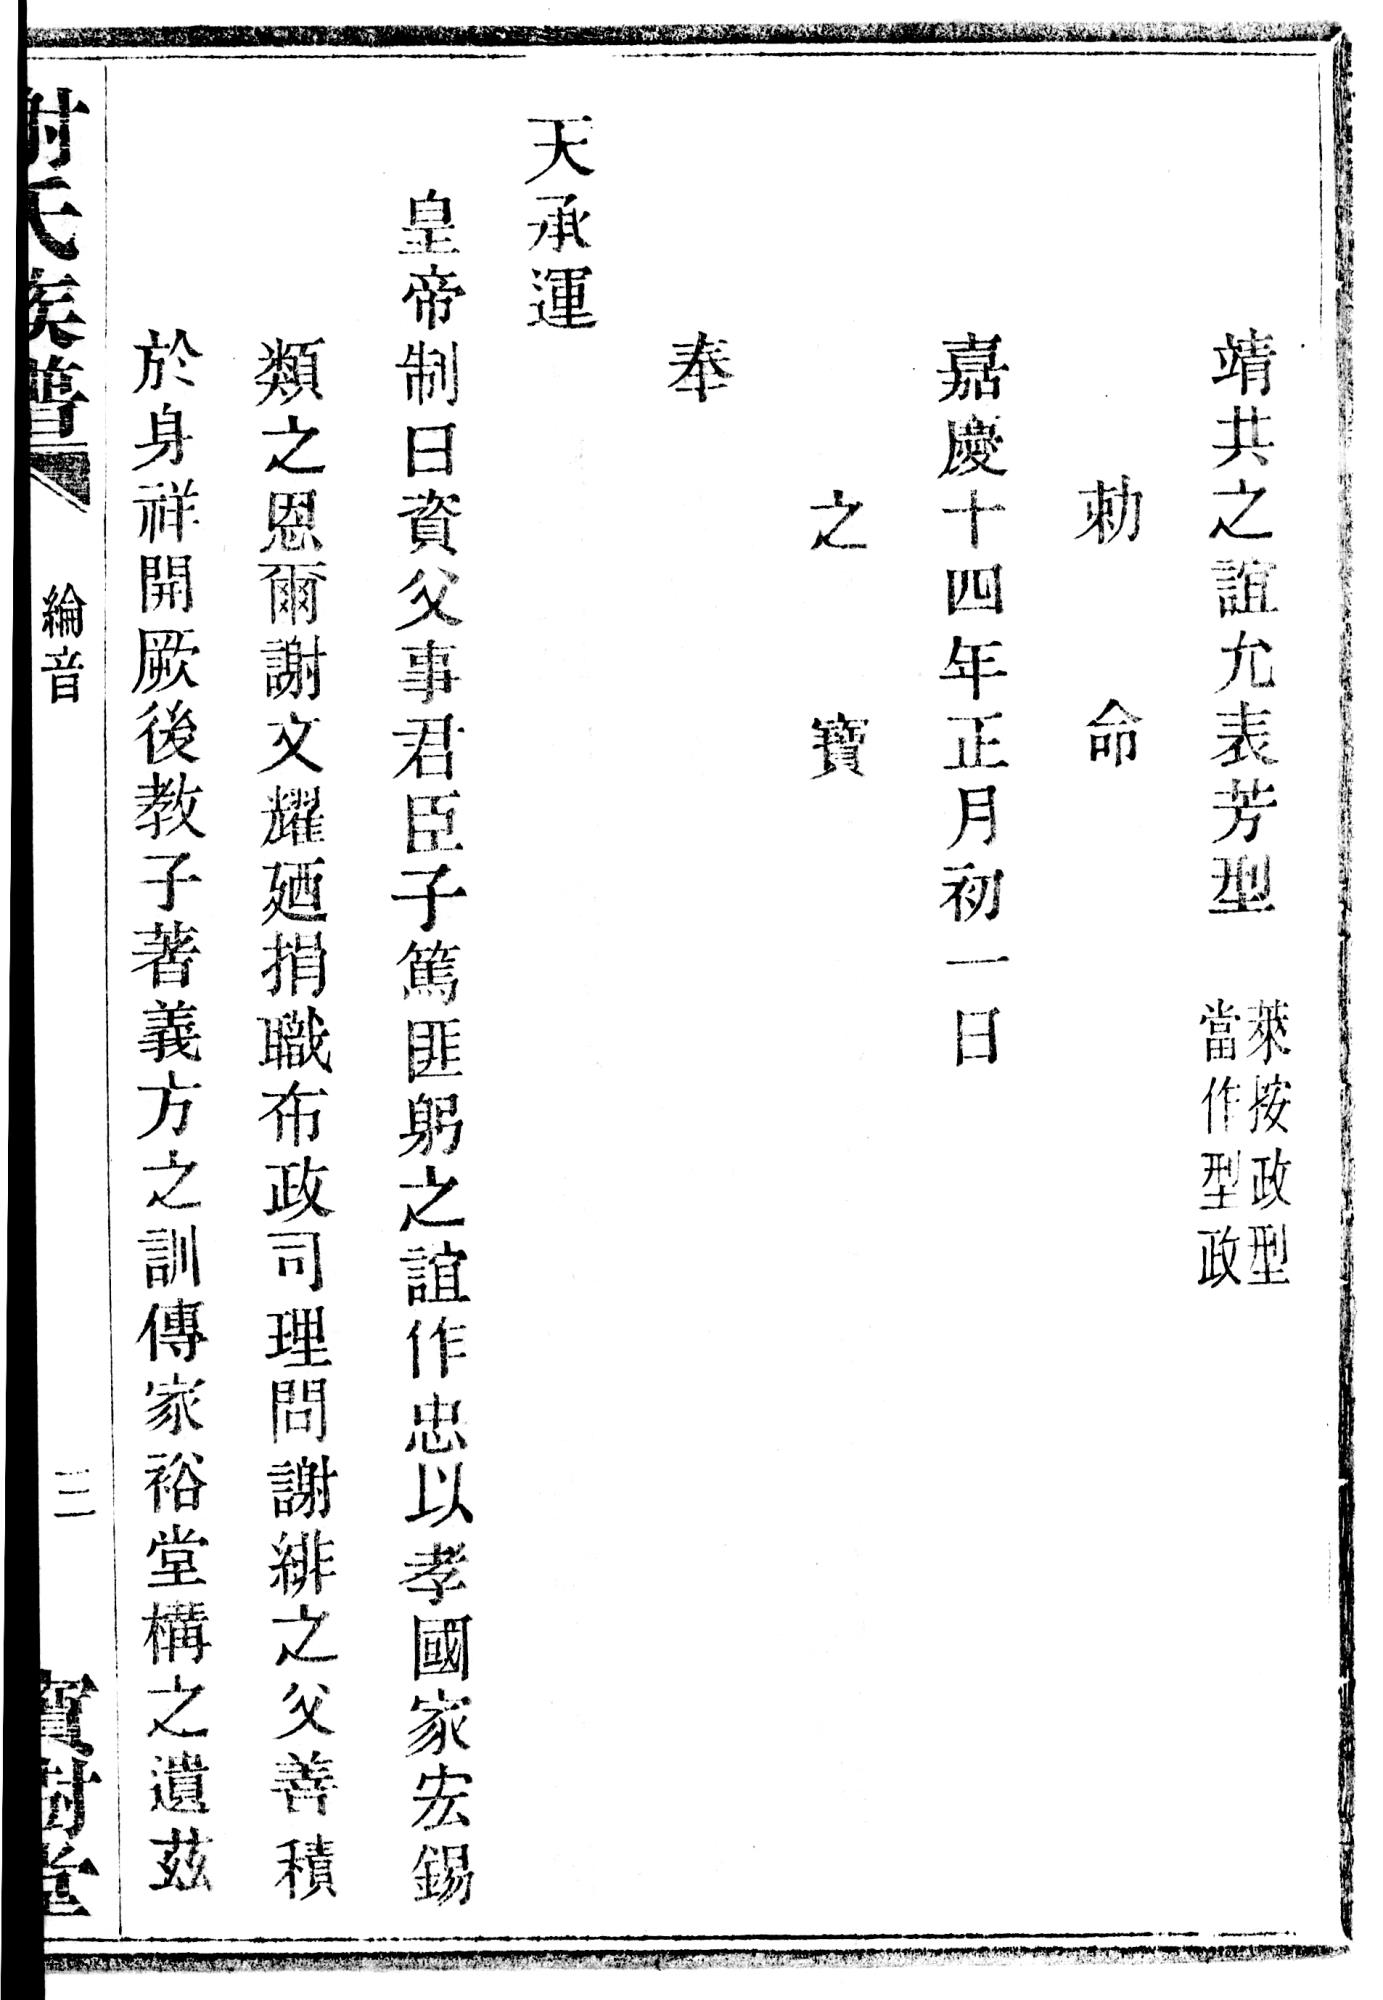 靖共之誼允表芳型
萊按政型
當作型政
勅命
嘉慶十四年正月初一日
之寶
奉
天承運
皇帝制曰資父事君臣子篤匪躬之誼作忠以孝國家宏錫
類之恩爾謝文耀廼捐職布政司理問謝緋之父善積
於身祥開厥後教子著義方之訓傳家裕堂構之遺茲
謝氏族譜
綸音
三
寶樹堂